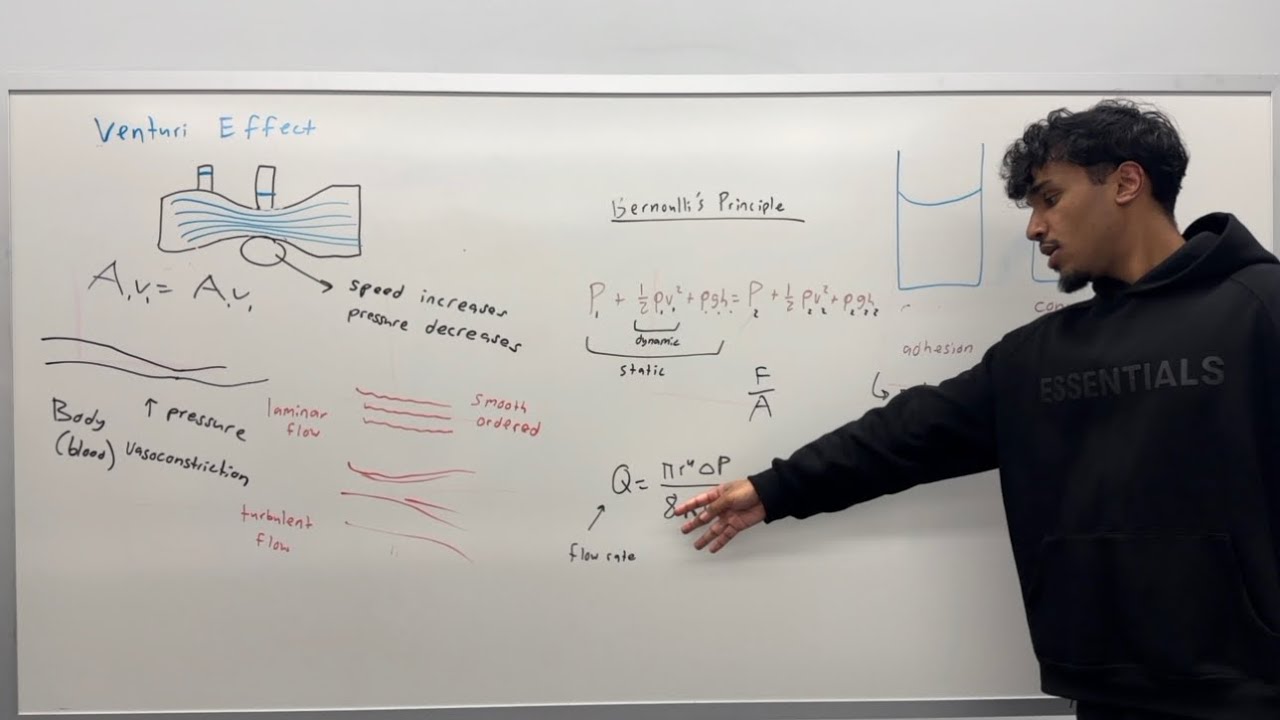 Venturi Effect
A₁v₁ = A₁v₁
speed increases
pressure decreases
Body
(blood)
↑ pressure
Vasoconstriction
laminar
flow
smooth
ordered
turbulent
flow
Bernoulli's Principle
P₁ + ½ρ₁v₁² + ρ₁g₁h₁ = P₂ + ½ρ₂v₂² + ρ₂g₂h₂
dynamic
static
F
A
Q = πr⁴ΔP
8
flow rate
adhesion
ESSENTIALS